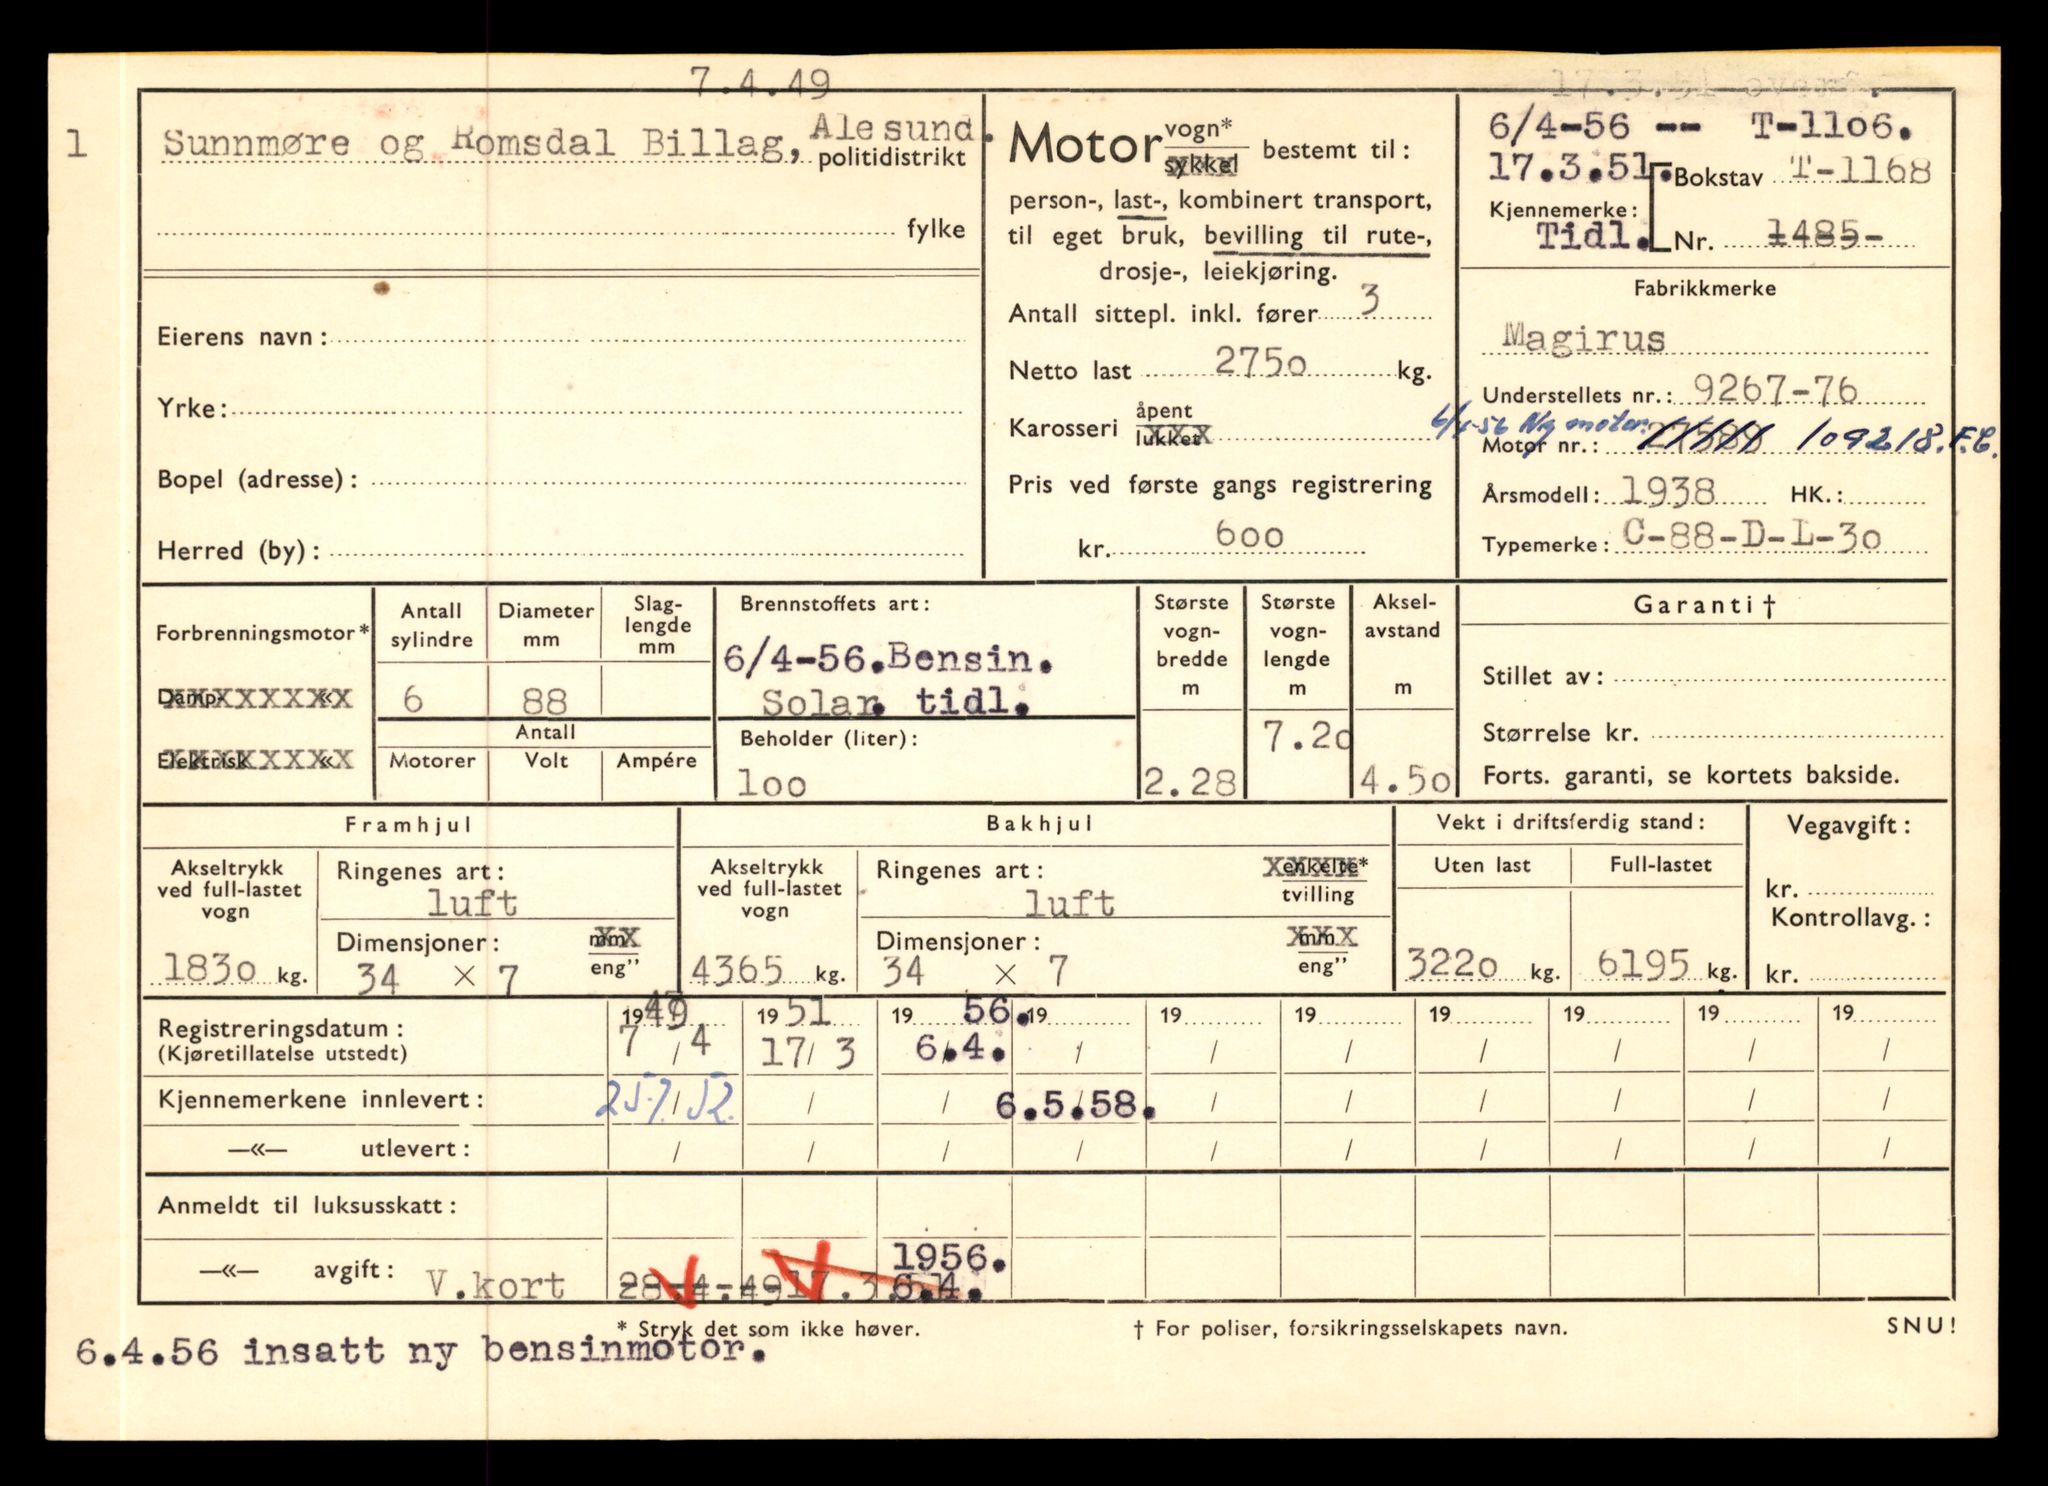 7.4.49
17.3.51 overf.
1
Sunnmøre og Romsdal Billag, Ålesund.
politidistrikt
fylke
Eierens navn:
Yrke:
Bopel (adresse):
Herred (by):
Motor vogn* sykkel bestemt til:
person-, last-, kombinert transport,
til eget bruk, bevilling til rute-,
drosje-, leiekjøring.
Antall sittepl. inkl. fører 3
Netto last 2750 kg.
Karosseri åpent lukket
Pris ved første gangs registrering
kr. 600
6/4-56 -- T-1106.
17.3.51. Bokstav T-1168
Kjennemerke:
Tidl. Nr. 1485-
Fabrikkmerke
Magirus
Understellets nr.: 9267-76
6/4-56 Ny motor.
Motor nr.: 109218.F.C.
Årsmodell: 1938 HK.:
Typemerke: C-88-D-L-30
Forbrenningsmotor*
Damp- «
Elektrisk «
Antall sylindre
6
Diameter mm
88
Slag-lengde mm
Antall
Motorer Volt Ampére
Brennstoffets art:
6/4-56.Bensin.
Solar. tidl.
Beholder (liter):
100
Største vogn-bredde m
2.28
Største vogn-lengde m
7.20
Aksel-avstand m
4.50
Garanti †
Stillet av:
Størrelse kr.
Forts. garanti, se kortets bakside.
Framhjul
Akseltrykk ved full-lastet vogn
1830 kg.
Ringenes art:
luft
Dimensjoner: mm eng"
34 × 7
Bakhjul
Akseltrykk ved full-lastet vogn
4365 kg.
Ringenes art: enkelte* tvilling
luft
Dimensjoner: mm eng"
34 × 7
Vekt i driftsferdig stand:
Uten last Full-lastet
3220 kg. 6195 kg.
Vegavgift:
kr.
Kontrollavg.:
kr.
Registreringsdatum: 1949 1951 19 56. 19 19 19 19 19 19 19
(Kjøretillatelse utstedt) 7 / 4 17/ 3 6.4. / / / / / / /
Kjennemerkene innlevert: 25.7.52. / / 6.5.58. / / / / / /
—«— utlevert: / / / / / / / / / /
Anmeldt til luksusskatt:
1956.
—«— avgift: V.kort 28.4.49 17.3. 6.4.
* Stryk det som ikke høver.
† For poliser, forsikringsselskapets navn.
SNU!
6.4.56 insatt ny bensinmotor.